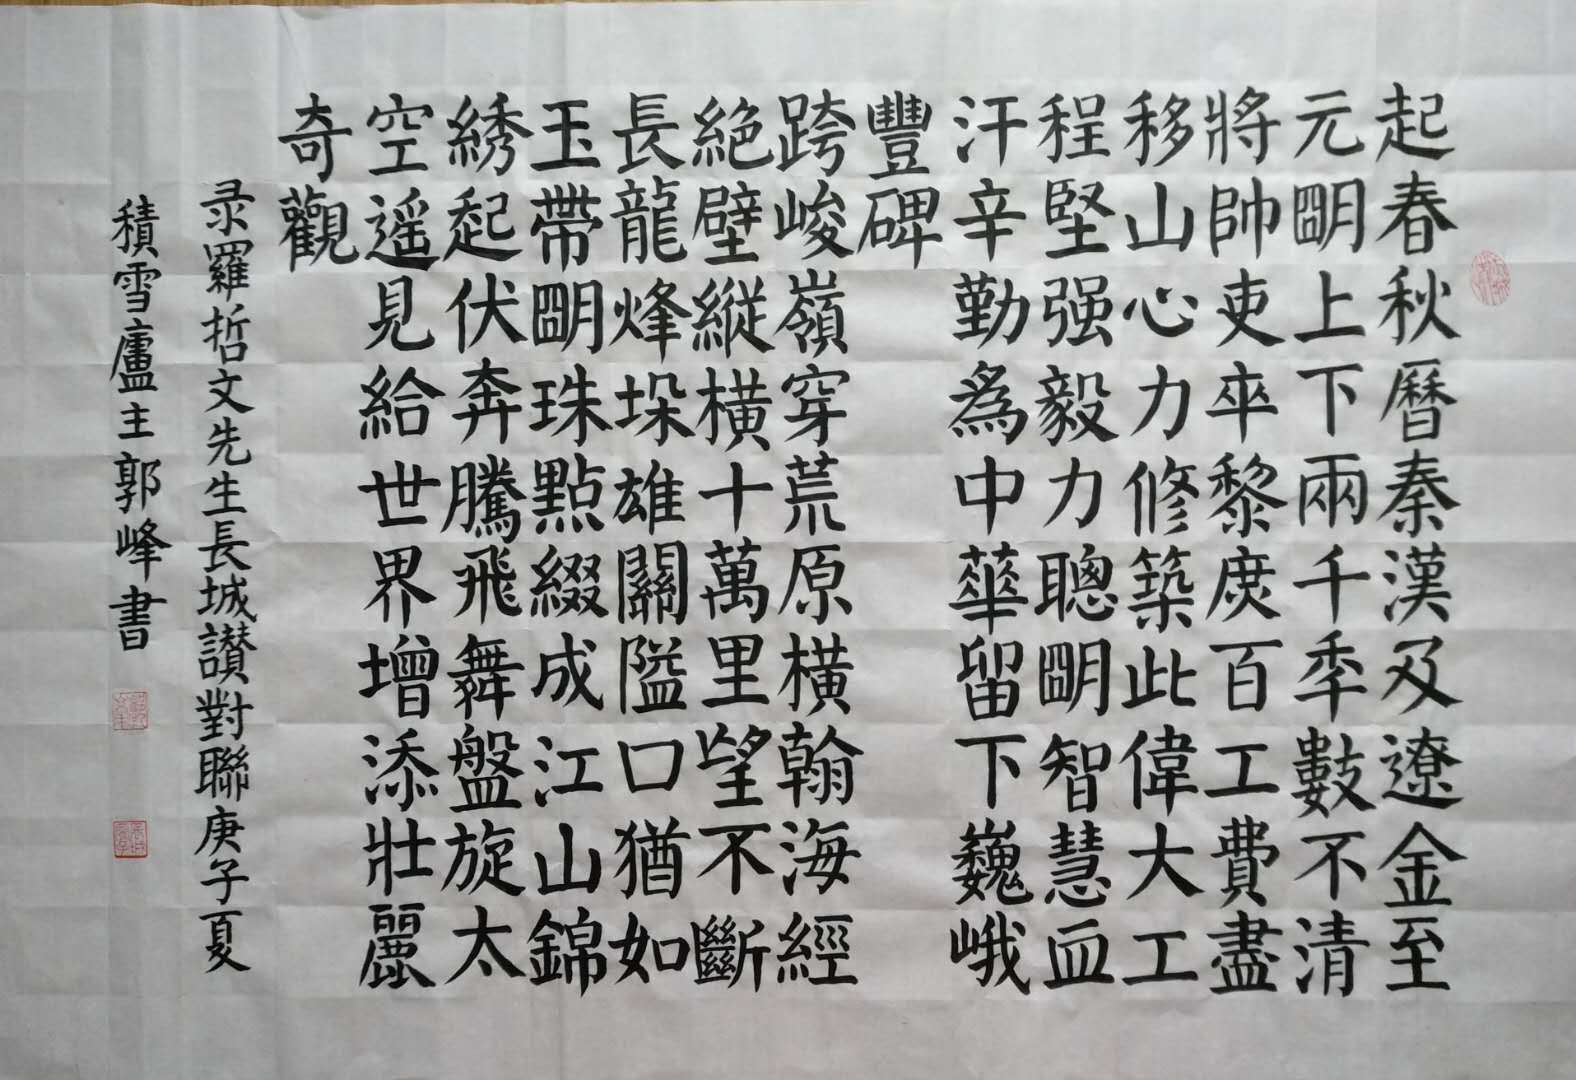 起春秋曆秦漢及遼金至
元朙上下兩千秊數不清
將帥吏卒黎庶百工費盡
移山心力修築此偉大工
程堅强毅力聰朙智慧血
汗辛勤為中華留下巍峨
豐碑
跨峻嶺穿荒原橫翰海經
絕壁縱橫十萬里望不斷
長龍烽垛雄關隘口猶如
玉帶朙珠點綴成江山錦
綉起伏奔騰飛舞盤旋太
空遥見給世界增添壯麗
奇觀
录羅哲文先生長城讃對聯庚子夏
積雪廬主郭峰書